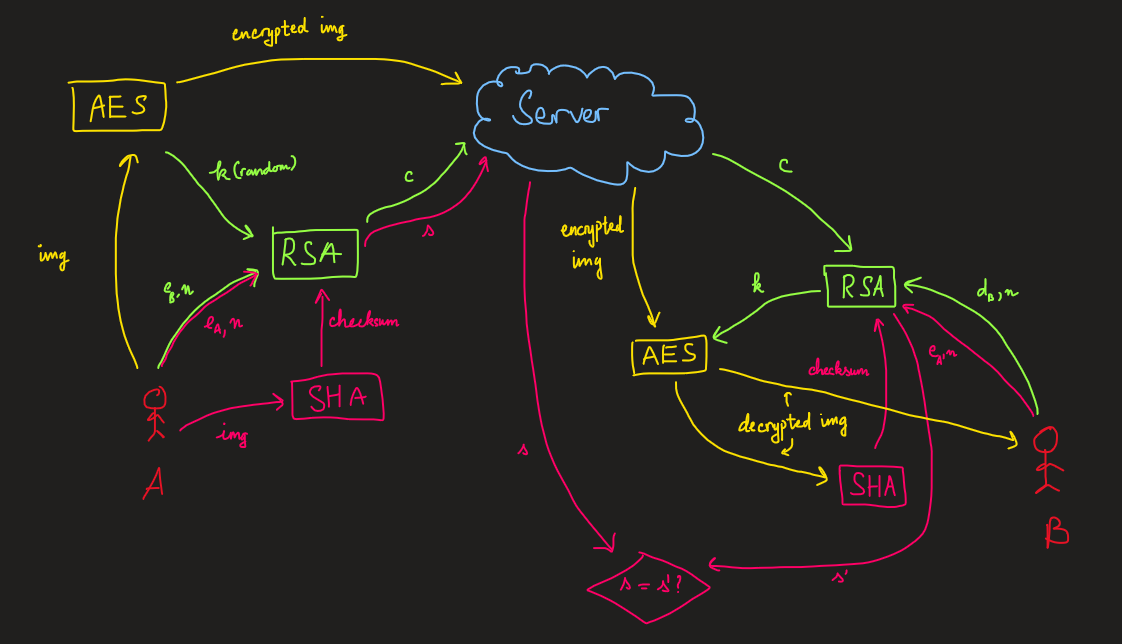 encrypted img
AES
Server
k (random)
c
c
img
s
encrypted
img
RSA
RSA
k
e_B, n
d_B, n
e_A, n
checksum
e_A, n
AES
checksum
SHA
img
decrypted img
A
s
SHA
B
s = s'?
s'